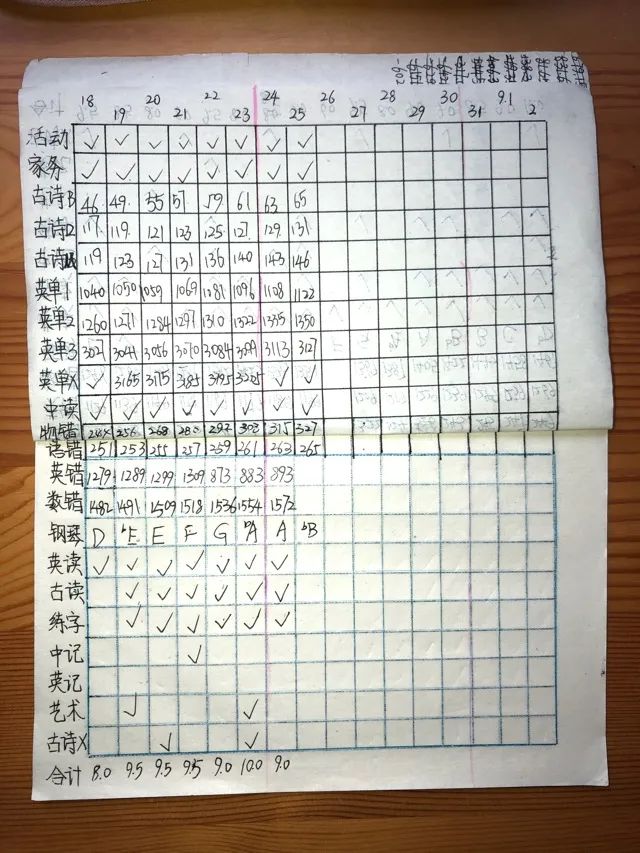 18 20 22 24 26 28 30 9.1
19 21 23 25 27 29 31 2
活动 ✓ ✓ ✓ ✓ ✓ ✓ ✓ ✓
家务 ✓ ✓ ✓ ✓ ✓ ✓ ✓ ✓
古诗B 46 49 55 57 59 61 63 65
古诗2 117 119 121 123 125 127 129 131
古诗 119 123 127 131 136 140 143 146
英单1 1040 1050 1059 1069 1281 1096 1108 1122
英单2 1260 1271 1284 1297 1310 1322 1335 1350
英单3 3027 3041 3056 3070 3084 3099 3113 3127
英单X ✓ 3165 3175 3185 3195 3205 ✓ ✓
中读 ✓ ✓ ✓ ✓ ✓ ✓ ✓ ✓
物错 256 268 280 292 303 315 327
语错 251 253 255 257 259 261 263 265
英错 1279 1289 1299 1309 873 883 893
数错 1482 1491 1509 1518 1536 1554 1572
钢琴 D ♭E E F G ♭A A ♭B
英读 ✓ ✓ ✓ ✓ ✓ ✓ ✓
古读 ✓ ✓ ✓ ✓ ✓ ✓
练字 ✓ ✓ ✓ ✓ ✓ ✓
中记 ✓
英记
艺术 ✓ ✓
古诗X ✓ ✓
合计 8.0 9.5 9.5 9.5 9.0 10.0 9.0